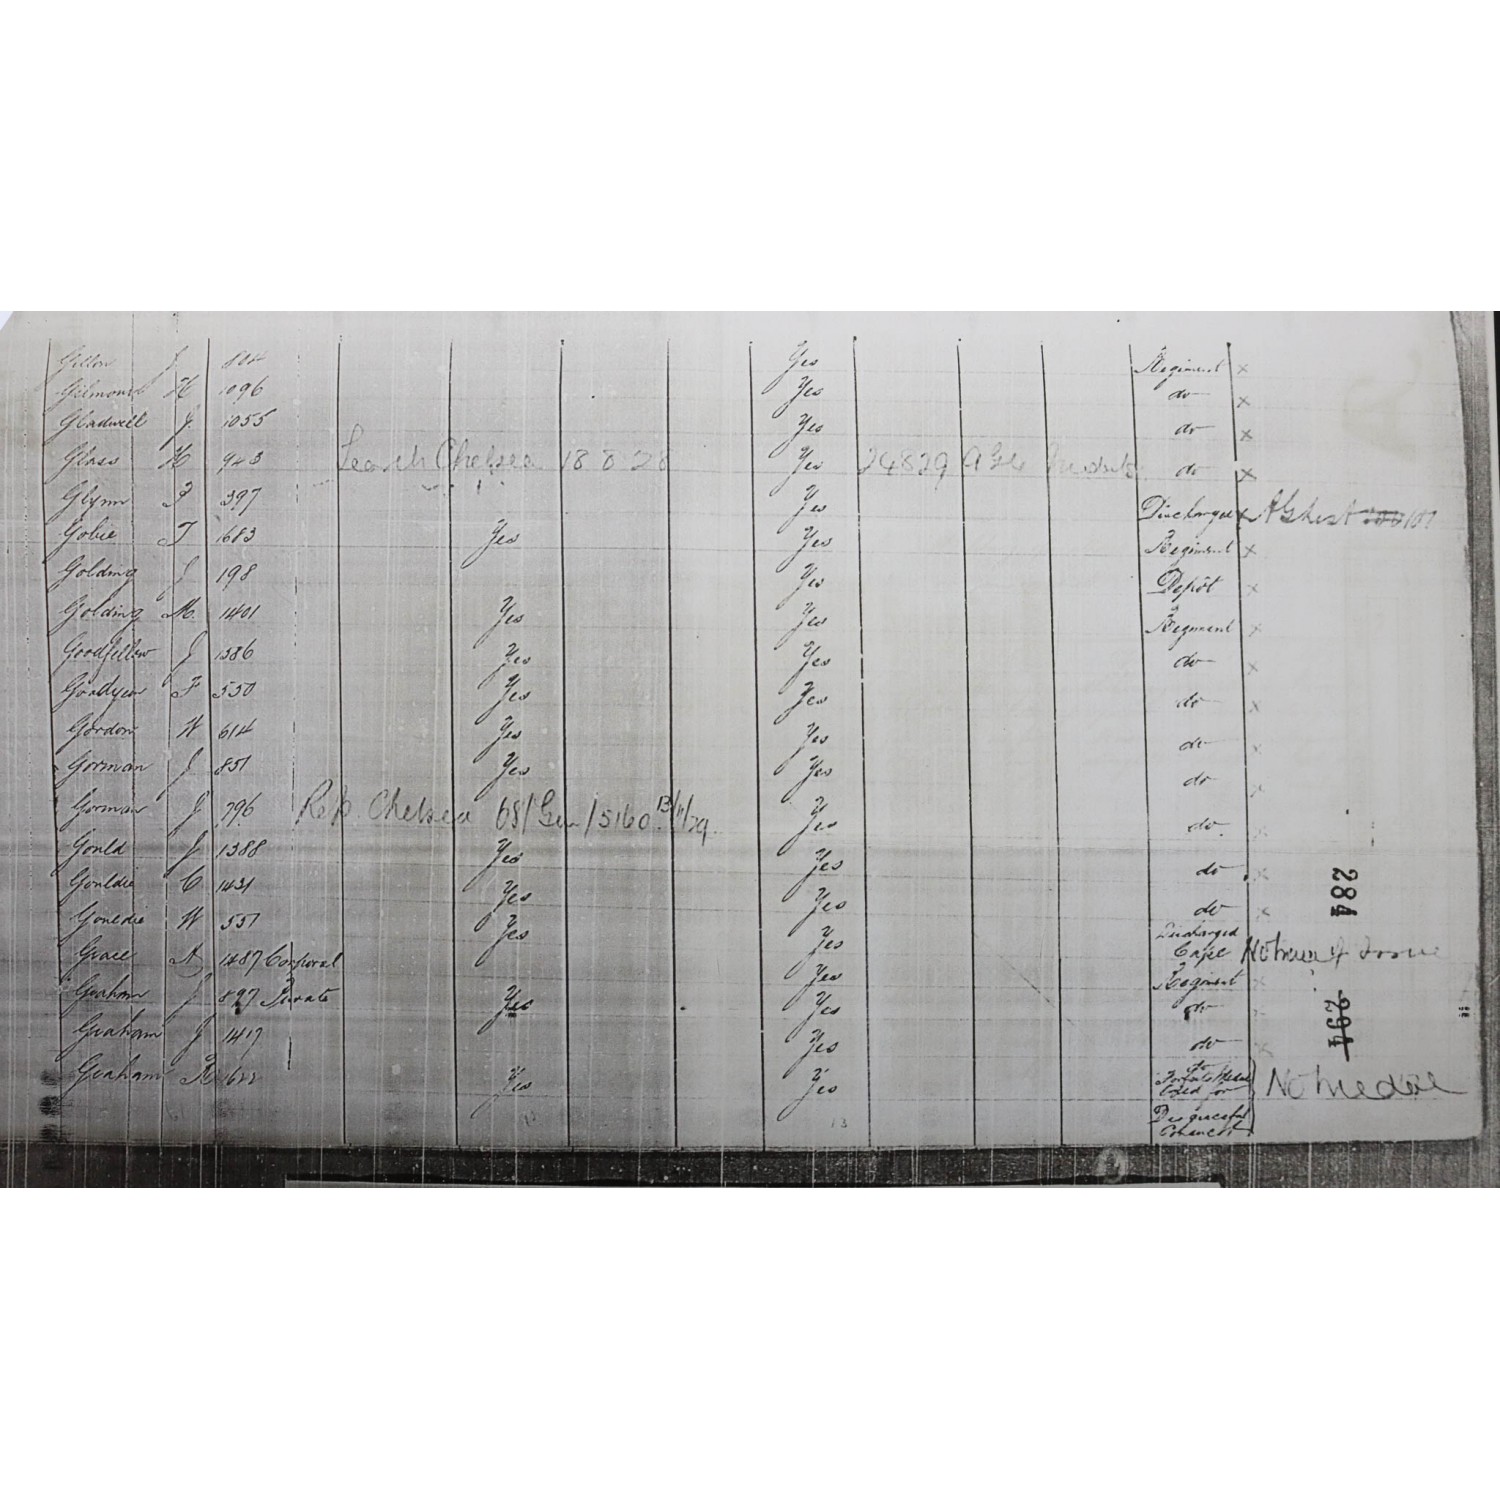 J Yes Regiment x
H 1096 Yes do x
Gladwell J. 1055 Yes do x
Glass H 943 Search Chelsea 18 8 28 Yes 24829 do x
Glynn 397 Yes Discharged x
Gobie T 1683 Yes Yes Regiment x
Golding J 198 Yes Depôt x
Golding M. 1401 Yes Yes Regiment x
Goodfellow J 1386 Yes Yes do x
Goodyear F 550 Yes Yes do x
Gordon W 614 Yes Yes do x
Gorman J 851 Yes Yes do x
Gorman J 796 Rep. Chelsea 68/Gen/5160 13/11/29. Yes do x
Gould J 1388 Yes Yes do x
Gouldie C 1431 Yes Yes do x
Gouldie W 551 Yes Yes Discharged Cape
Grace A 1487 Corporal Yes Regiment x
Graham J 897 Private Yes Yes do x
Graham J 1417 Yes do x
Graham R 1622 Yes Yes do No medal
Disgraceful
Conduct
13
284
294